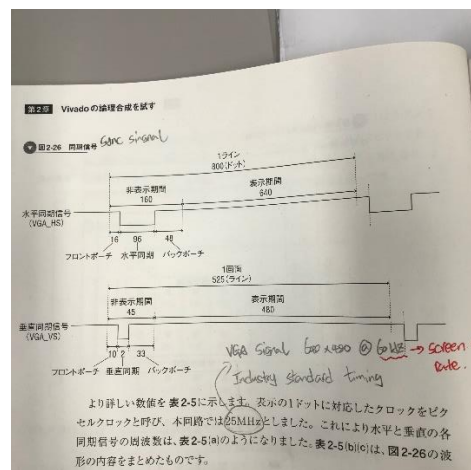 第2章 Vivadoの論理合成を試す
図2-26 同期信号 Sync signal
1ライン
800(ドット)
非表示期間
160
表示期間
640
水平同期信号
(VGA_HS)
16 96 48
フロントポーチ 水平同期 バックポーチ
1画面
525(ライン)
非表示期間
45
表示期間
480
垂直同期信号
(VGA_VS)
10 2 33
フロントポーチ 垂直同期 バックポーチ
VGA signal 600 x 480 @ 60 Hz → screen
rate.
Industry standard timing
より詳しい数値を表2-5に示します。表示の1ドットに対応したクロックをピク
セルクロックと呼び、本回路では25MHzとしました。これにより水平と垂直の各
同期信号の周波数は、表2-5(a)のようになりました。表2-5(b)(c)は、図2-26の波
形の内容をまとめたものです。